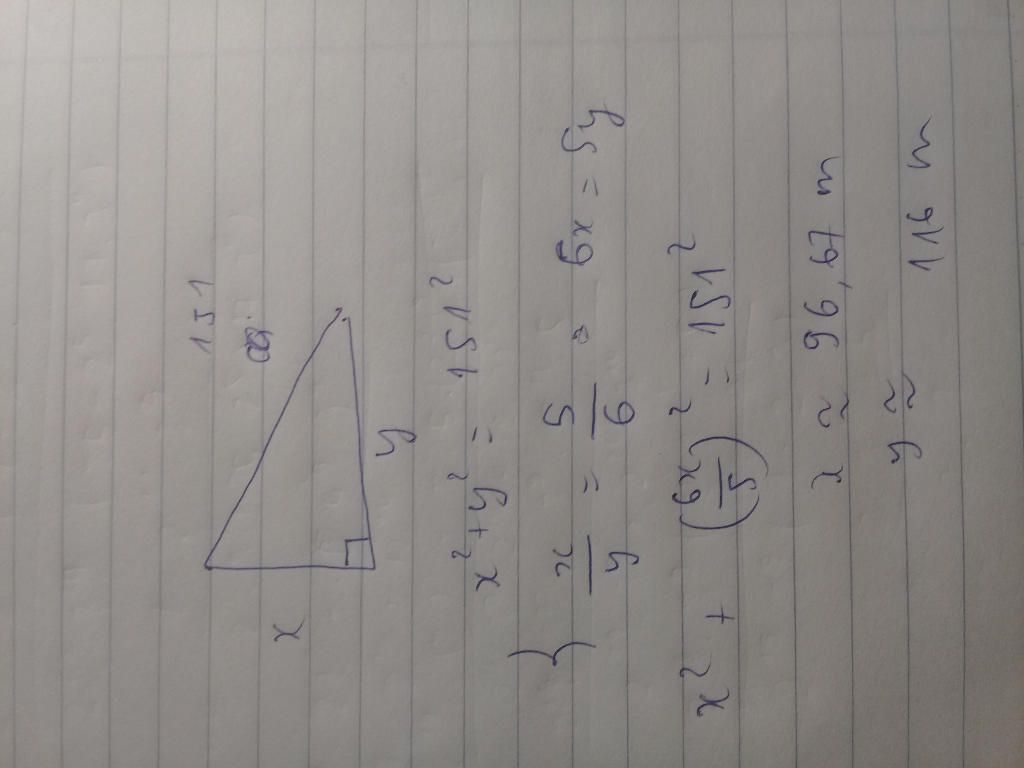 151
x
y
x² + y² = 151²
} x/y = 5/6 ∘ 6x = 5y
x² + (6x/5)² = 151²
x ≈ 96,67 m
y ≈ 116 m